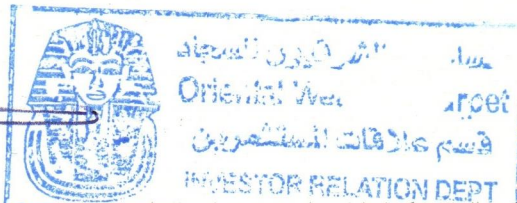 الشرقيون للسجاد
Oriental We rpet
قسم علاقات المستثمرين
INVESTOR RELATION DEPT